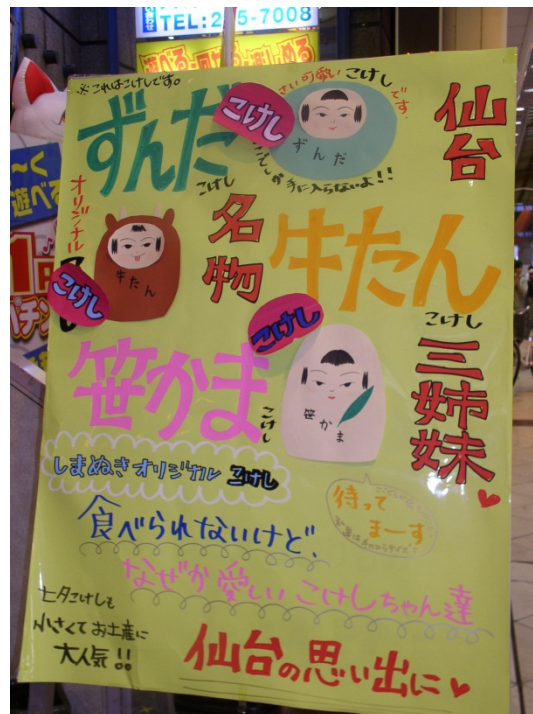 TEL:2
5-7008
遊べる
※これはこけしです。
ずんだ
こけし
さい可愛いこけしです。
ずんだ
手に入らないよ!!
仙台
遊べる
オリジナル
こけし
こけし
牛たん
名物
牛たん
こけし
笹かま
こけし
こけし
笹かま
こけし
三姉妹
しまぬきオリジナルこけし
待って
まーす
食べられないけど、
なぜか愛しいこけしちゃん達
七夕こけしも
小さくてお土産に
大人気!!
仙台の思い出に